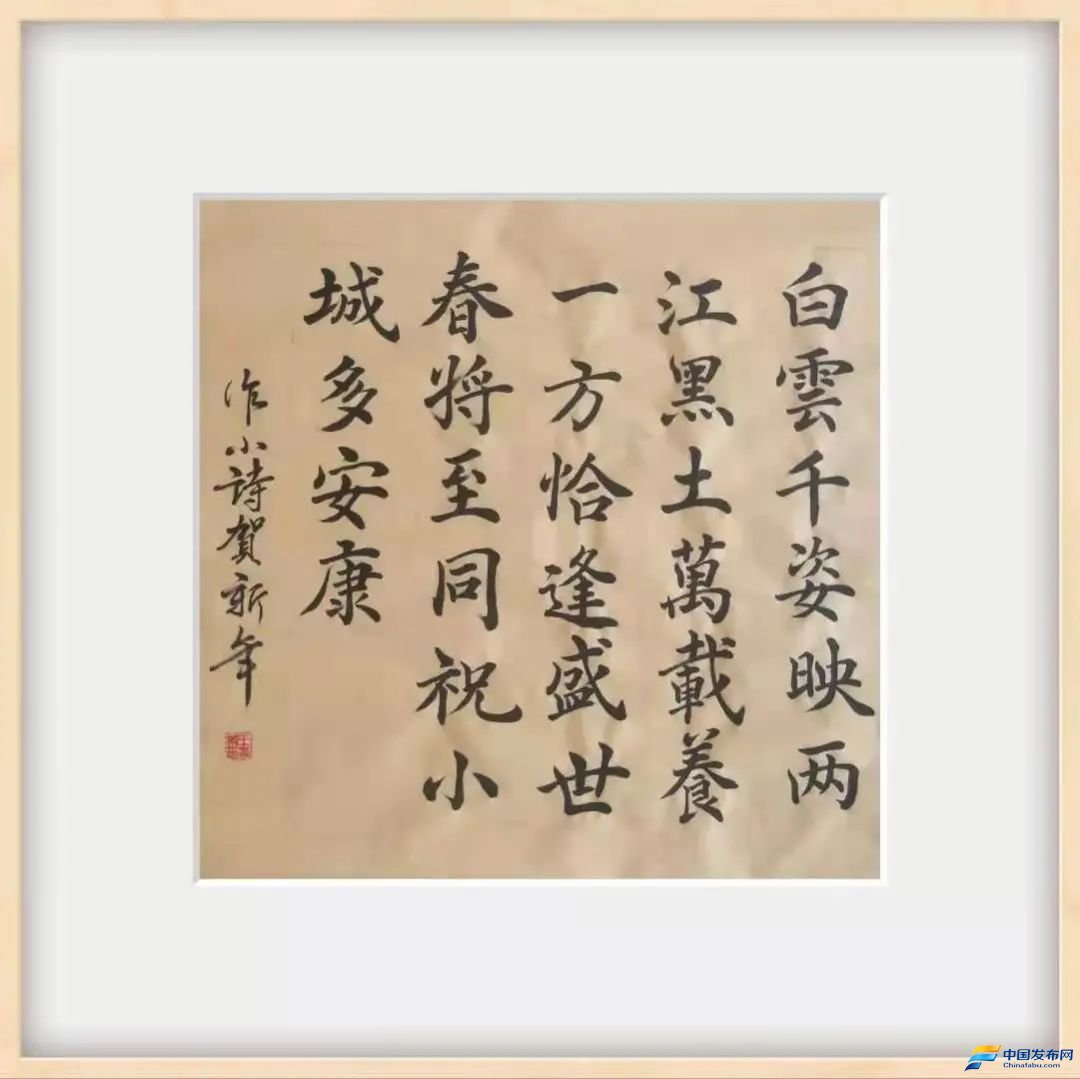 白雲千姿映两
江黑土萬載養
一方恰逢盛世
春将至同祝小
城多安康
作小詩賀新年
中国发布网
Chinafabu.com